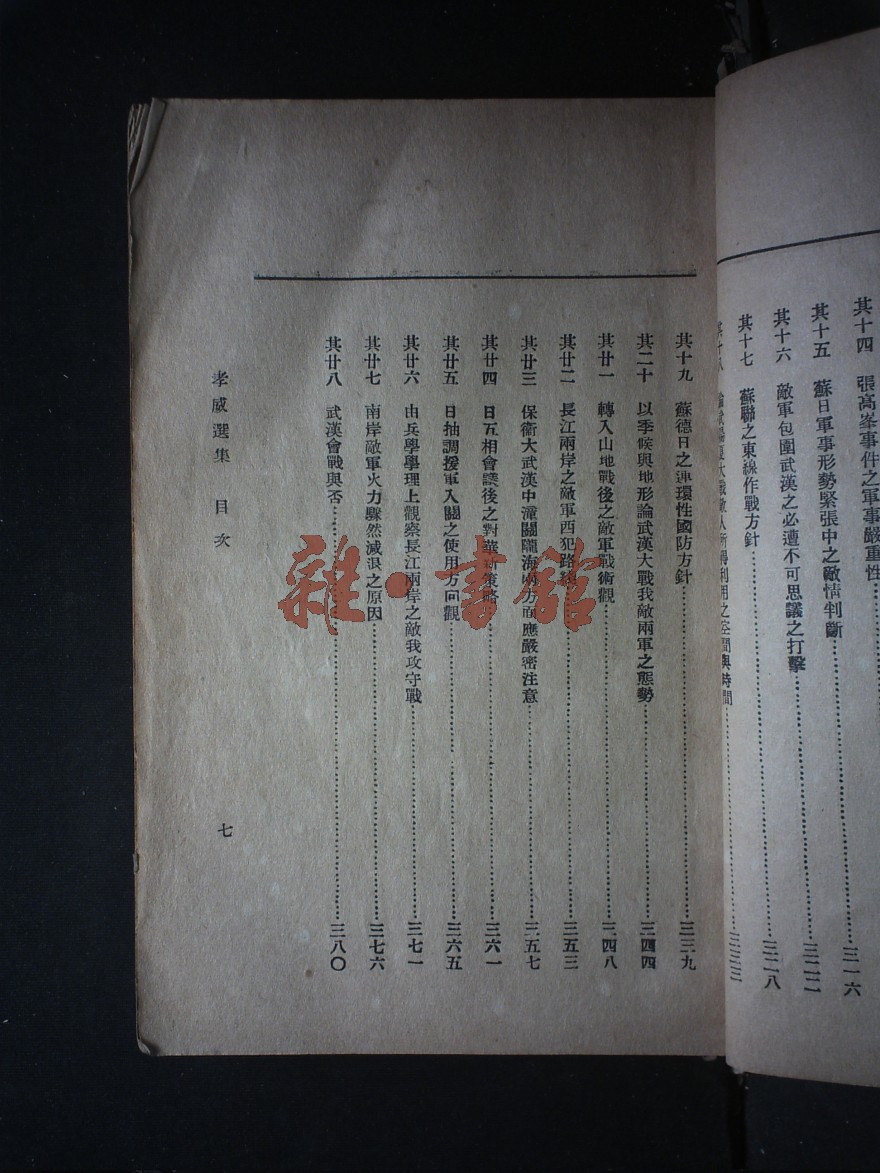 其十四　張高峯事件之軍事嚴重性………三一六
其十五　蘇日軍事形勢緊張中之敵情判斷………三二二
其十六　敵軍包圍武漢之必遭不可思議之打擊………三二八
其十七　蘇聯之東線作戰方針………三三三
大戰敵人所得利用之空間與時間………
其十九　蘇德日之連環性國防方針………三三九
其二十　以季候與地形論武漢大戰我敵兩軍之態勢………三四四
其廿一　轉入山地戰後之敵軍戰術觀………三四八
其廿二　長江兩岸之敵軍西犯路線………三五三
其廿三　保衛大武漢中潼關隴海兩方面應嚴密注意………三五七
其廿四　日五相會議後之對華新策略………三六一
其廿五　日抽調援軍入關之使用方向觀………三六五
其廿六　由兵學學理上觀察長江兩岸之敵我攻守戰………三七一
其廿七　南岸敵軍火力驟然減退之原因………三七六
其廿八　武漢會戰與否………三八〇
孝威選集　目次
七
雜·書館